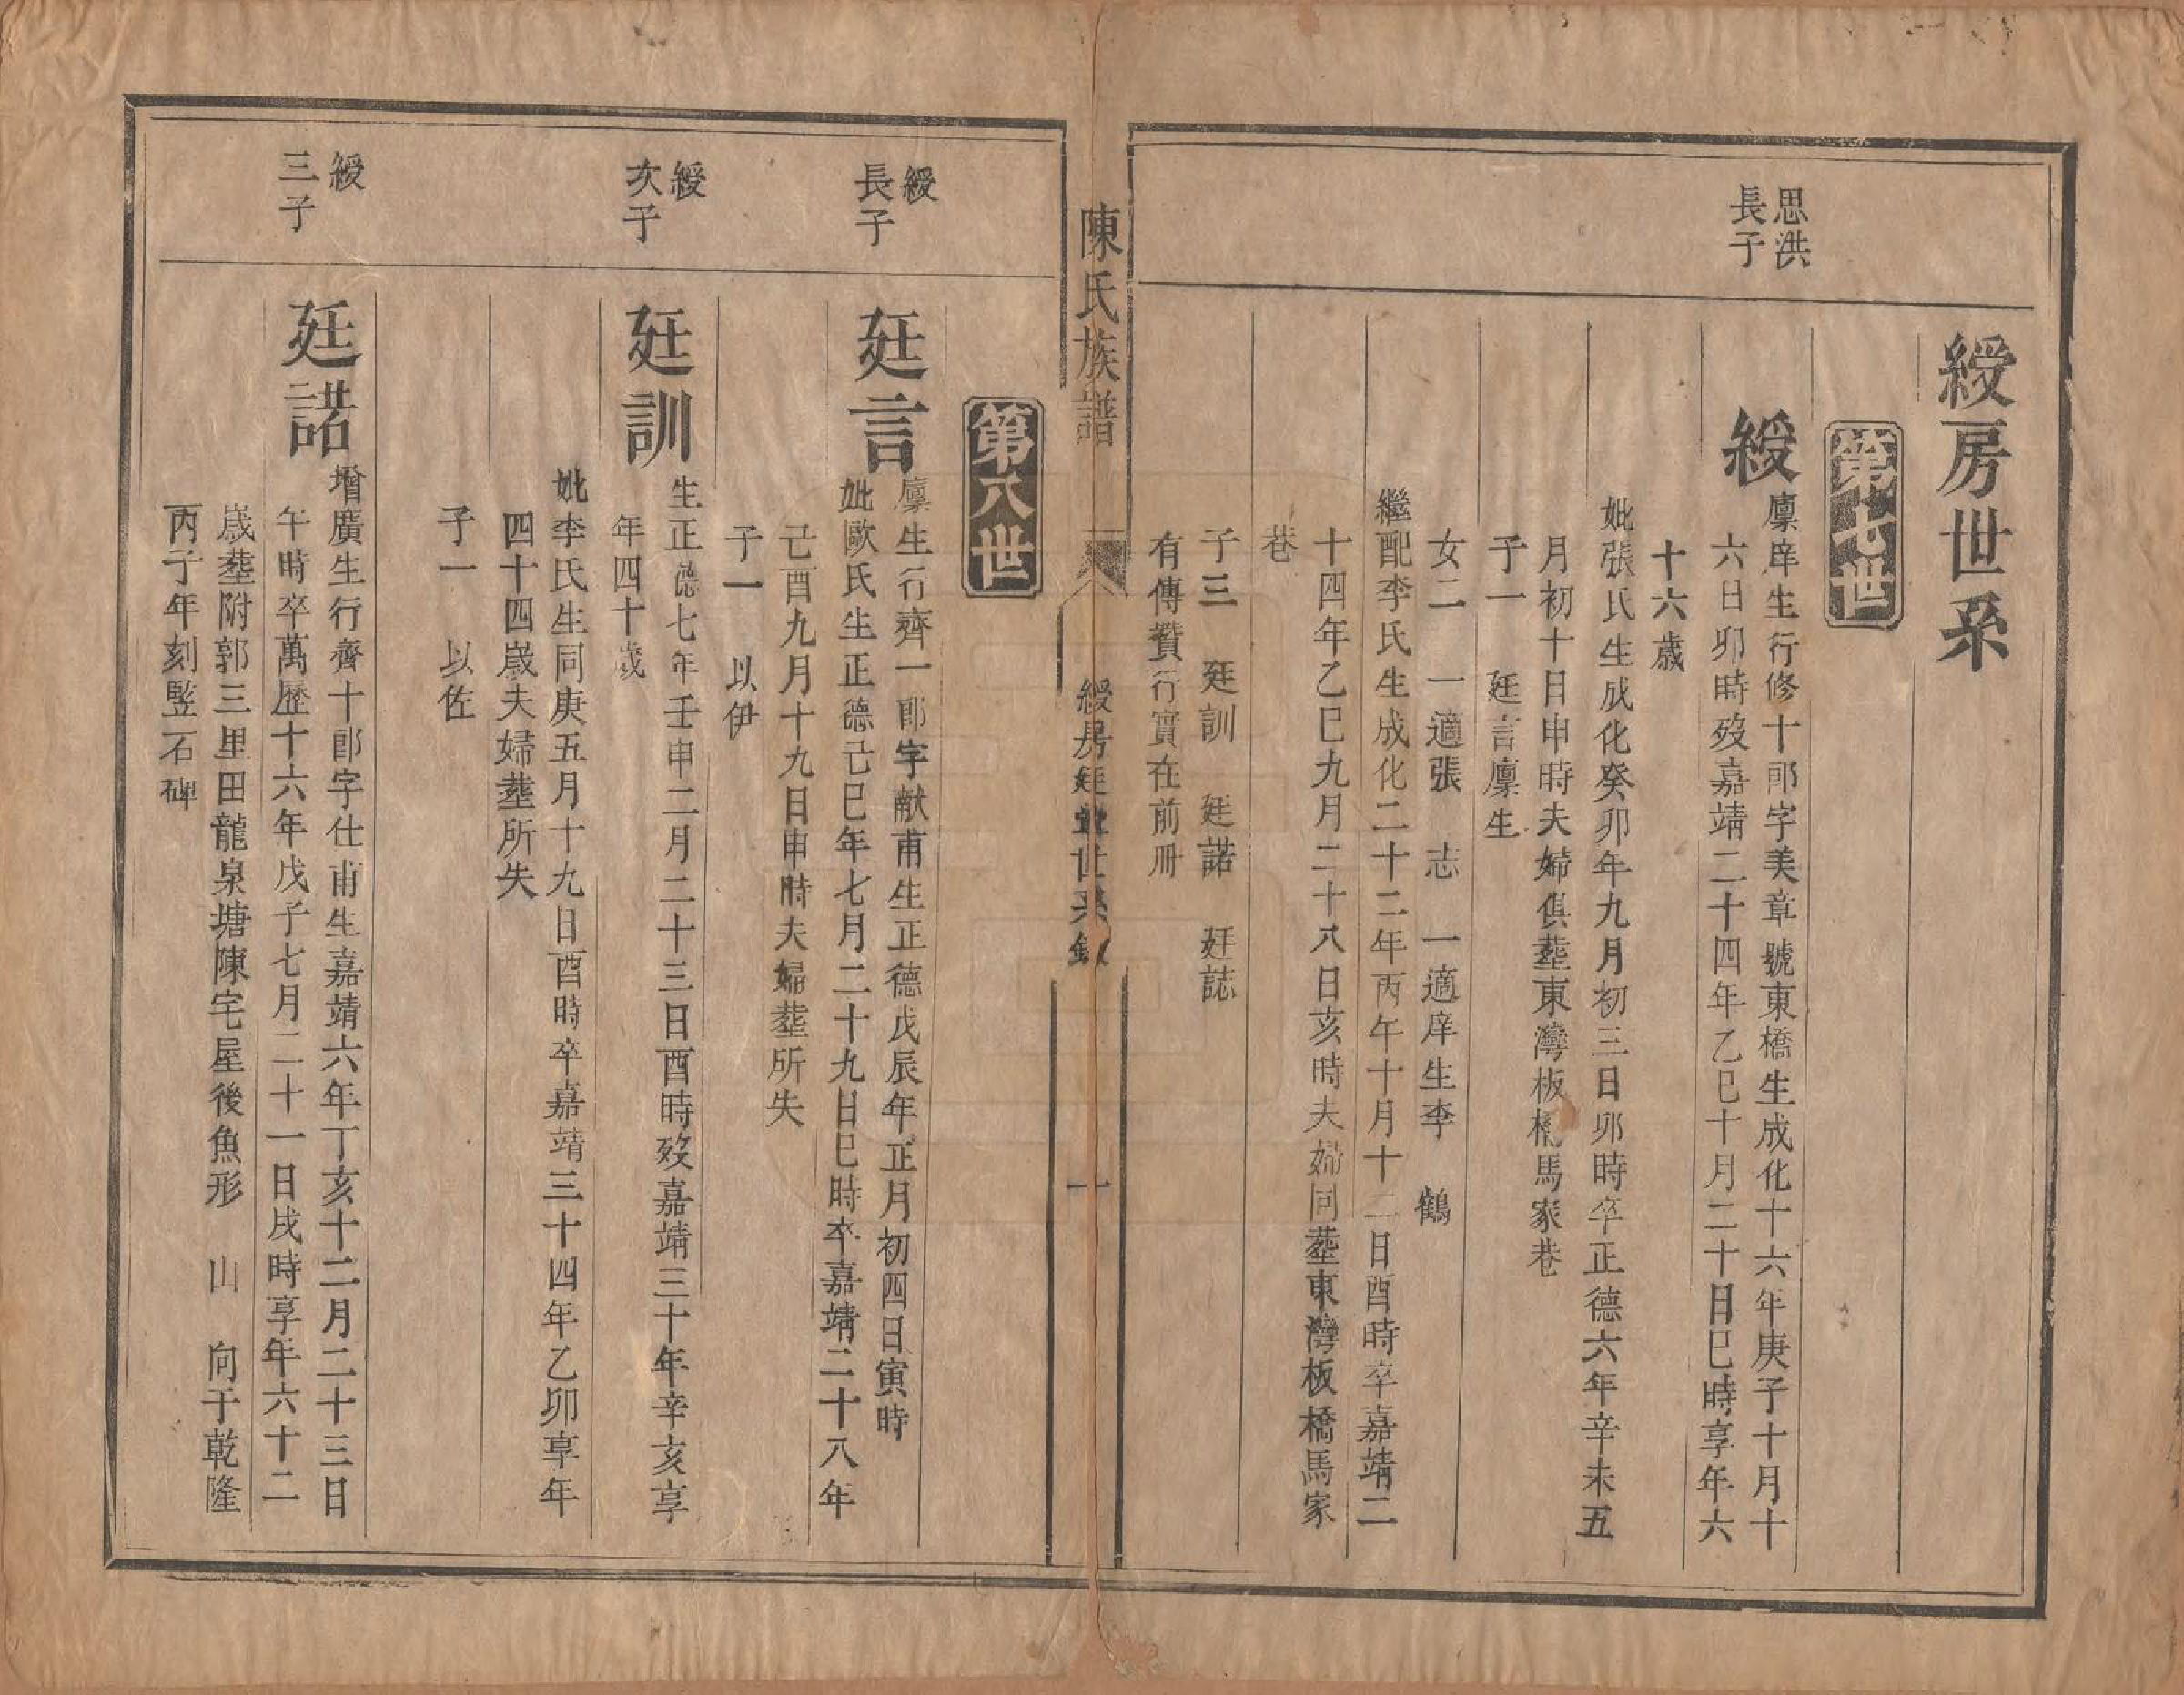 綬房世系
第七世
思洪
長子
綬
廩庠生行修十郎字美章號東橋生成化十六年庚子十月十
六日卯時歿嘉靖二十四年乙巳十月二十日巳時享年六
十六歲
妣張氏生成化癸卯年九月初三日卯時卒正德六年辛未五
月初十日申時夫婦俱塟東灣板橋馬家巷
子一 廷言廩生
女二 一適張 志 一適庠生李 鶴
繼配李氏生成化二十二年丙午十月十二日酉時卒嘉靖二
十四年乙巳九月二十八日亥時夫婦同塟東灣板橋馬家
巷
子三 廷訓 廷諾 廷誌
有傳贊行實在前冊
陳氏族譜
綬房廷 世系
一
第八世
綬
長子
廷言
廩生行齊一郎字献甫生正德戊辰年正月初四日寅時
妣歐氏生正德己巳年七月二十九日巳時卒嘉靖二十八年
己酉九月十九日申時夫婦塟所失
子一 以伊
綬
次子
廷訓
生正德七年壬申二月二十三日酉時歿嘉靖三十年辛亥享
年四十歲
妣李氏生同庚五月十九日酉時卒嘉靖三十四年乙卯享年
四十四歲夫婦塟所失
子一 以佐
綬
三子
廷諾
增廣生行齊十郎字仕甫生嘉靖六年丁亥十二月二十三日
午時卒萬歷十六年戊子七月二十一日戌時享年六十二
歲塟附郭三里田龍泉塘陳宅屋後魚形 山 向于乾隆
丙子年刻竪石碑